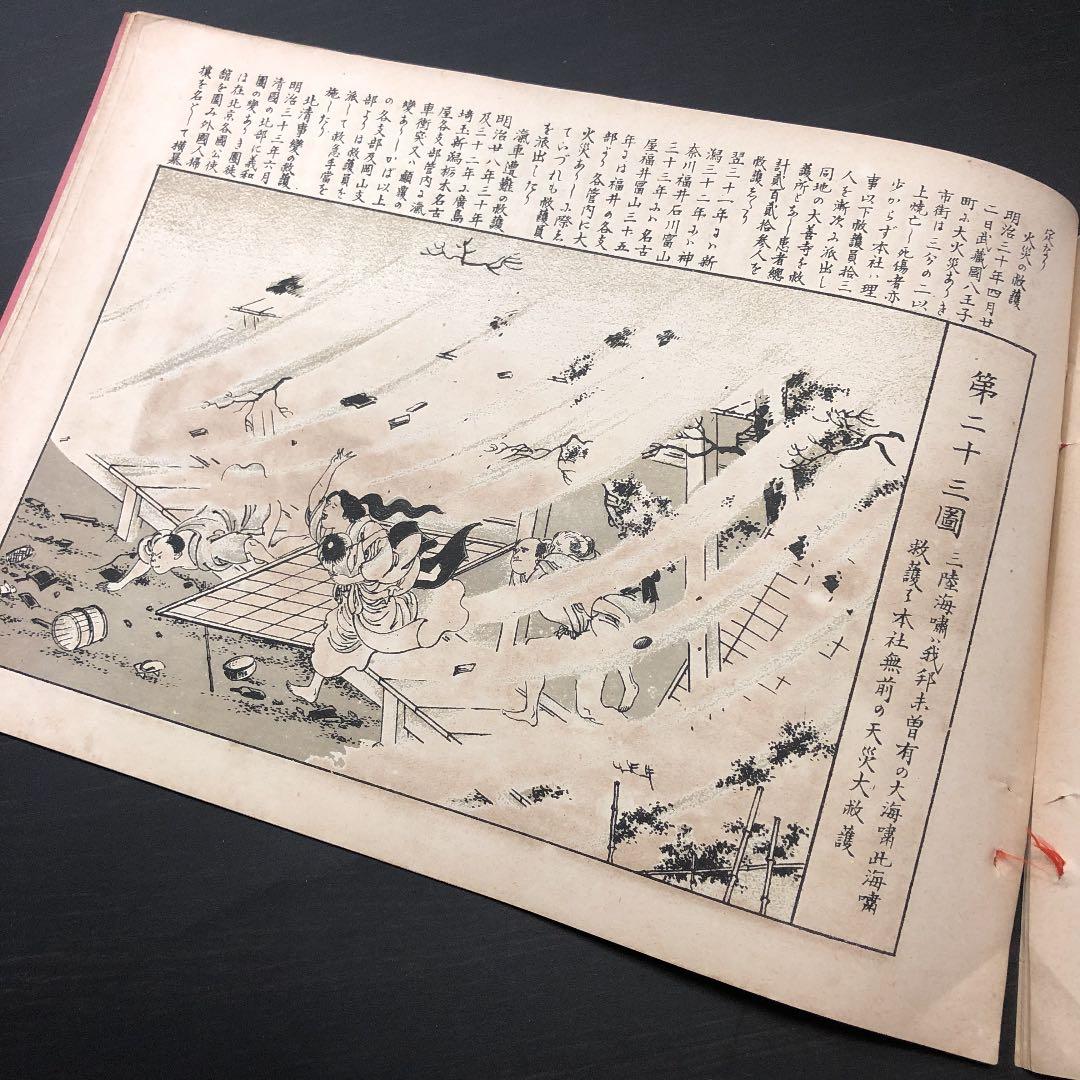 定なり
火災の救護
明治三十年四月廿
二日武蔵國八王子
町に大火災ありき
市街は三分の二以
上焼亡し死傷者亦
少からず本社は理
事以下救護員拾三
人を漸次に派出し
同地の大善寺を救
護所とあし患者總
計貳百貳拾參人を
救護をり
翌三十一年には新
潟三十二年には神
奈川福井石川富山
三十三年には名古
屋福井冨山三十五
年には福井の各支
部より各管内に大
火災ありし際に
ていづれも救護員
を派出したり
滊車遭難の救護
明治廿八年三十年
及三十二年に廣島
埼玉新潟栃木名古
屋各支部管内に滊
車衝突又は顛覆の
變ありしかば以上
の各支部及岡山支
部よりは救護員を
派して救急手當を
施したり
北清事變の救護
明治三十三年六月
清國の北部に義和
團の變あり團徒
は在北京各國公使
舘を圍み外國人掃
攘を名として横暴
第二十三圖
三陸海嘯は我邦未曽有の大海嘯此海嘯
救護は本社無前の天災大救護